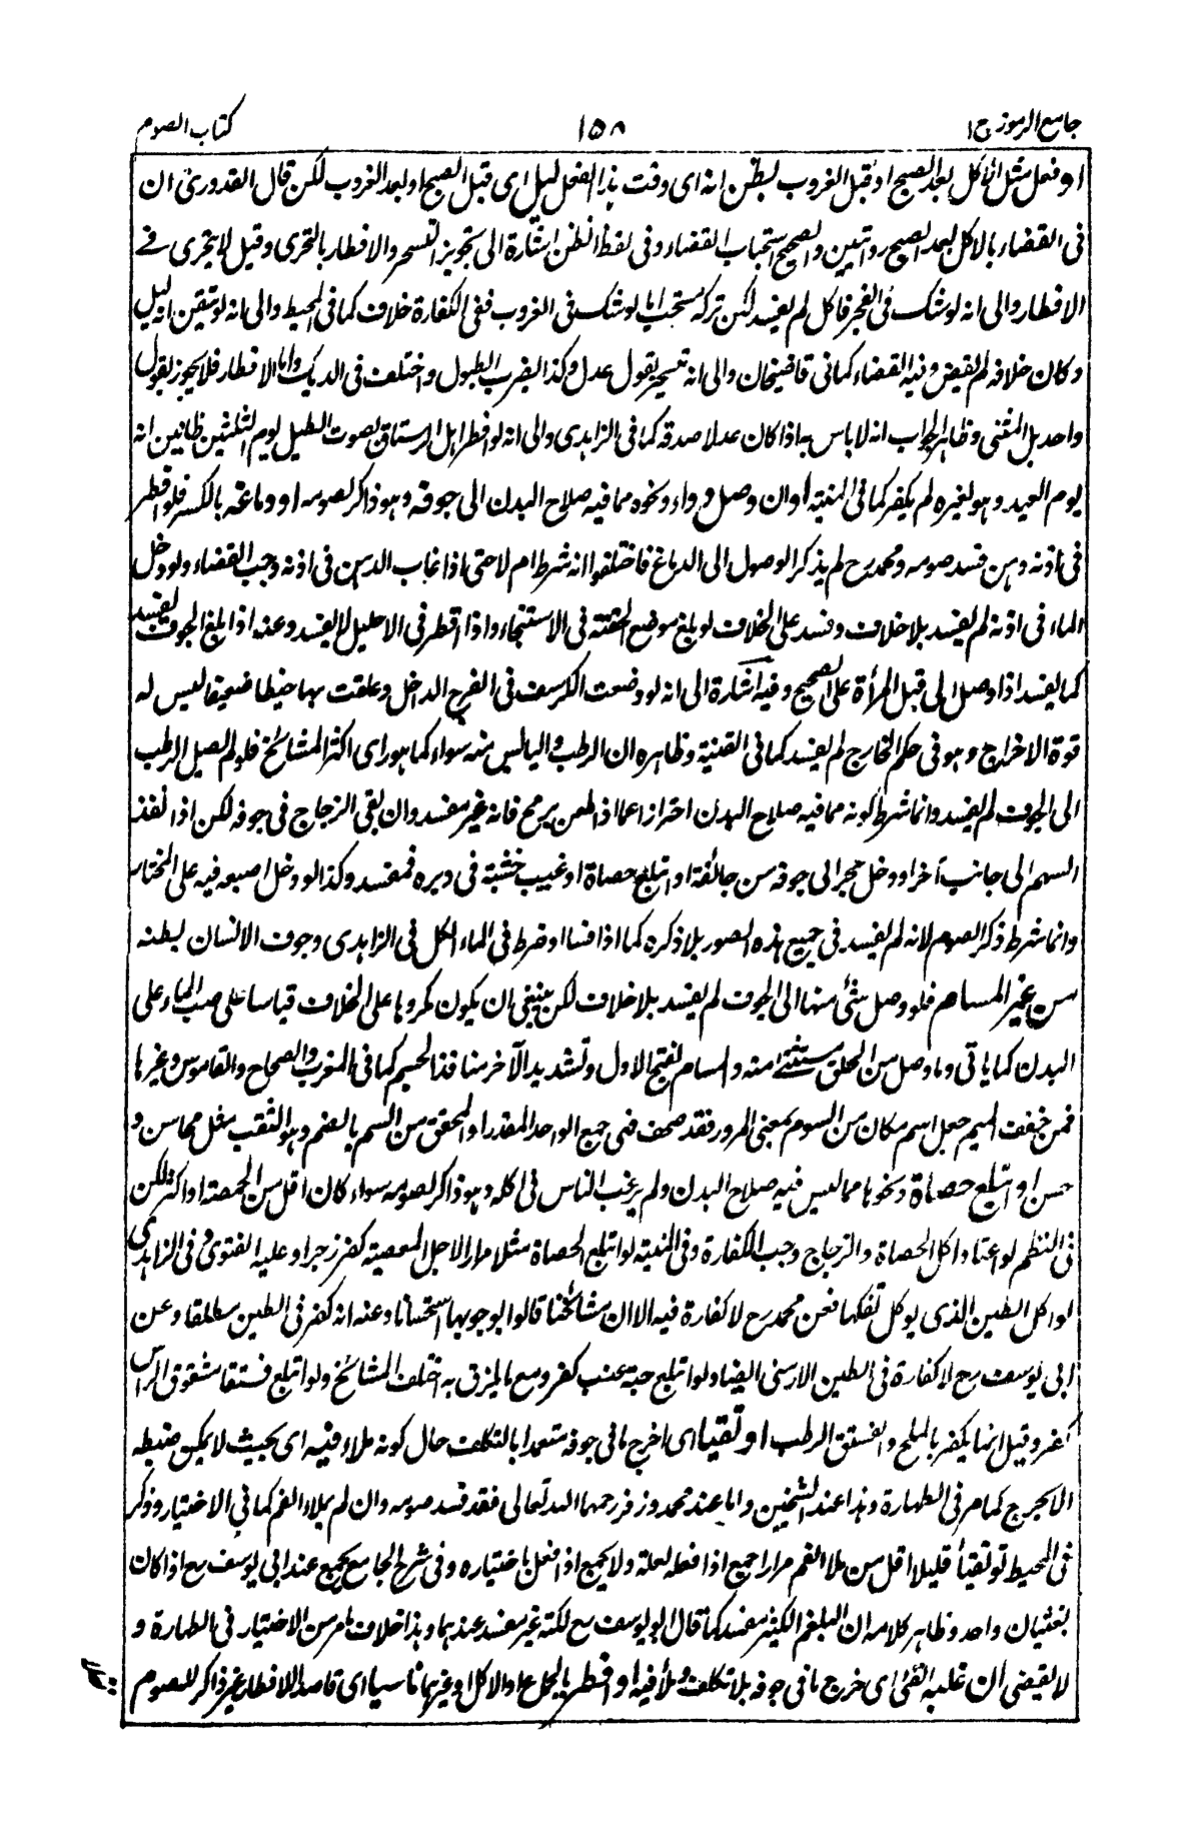 جامع الرموز ج١
١٥٨
كتاب الصوم
او فعل مثل الأكل بعد الصبح او قبل الغروب لظن انه اى وقت هذا الفعل ليل اى قبل الصبح او بعد الغروب لكن قال القدورى ان
فى القضاء بالاكل بعد الصبح روايتين والصحيح استحباب القضاء وفى لفظ الظن اشارة الى تجويز التسحر والافطار بالتحرى وقيل لا يتحرى فے
الافطار والى انه لو شك فى الفجر فاكل لم يفسد لكن تركه مستحب اما لو شك فى الغروب ففى الكفارة خلاف كما فى المحيط والى انه لو تيقن انه ليل
وكان خلافه لم يقض وفيه القضاء كما فى قاضيخان والى انه تسحر بقول عدل وكذا بضرب الطبول واختلف فى الديك واما الافطار فلا يجوز بقول
واحد بل المثنى وظاهر الجواب انه لا باس به اذا كان عدلا صدقه كما فى الزاهدى والى انه لو افطر اهل الرستاق بصوت الطبل يوم الثلثين ظانين انه
يوم العيد وهو لغيره لم يكفر كما فى المنية او ان وصل دواء ونحوه مما فيه صلاح البدن الى جوفه وهو ذاكر لصومه او دماغه بالكسر فلو اقطر
فى اذنه دهن فسد صومه ومحمد رح لم يذكر الوصول الى الدماغ فاختلفوا انه شرط ام لا حتى اذا غاب الدهن فى اذنه وجب القضاء ولو دخل
الماء فى اذنه لم يفسد بلا خلاف وفسد على الخلاف لو بلغ موضع الحقنة فى الاستنجاء واذا اقطر فى الاحليل لا يفسد وعنه اذا بلغ الجوف يفسد
كما يفسد اذا وصل الى قبل المرأة على الصحيح وفيه اشارة الى انه لو وضعت الكرسف فى الفرج الداخل وعلقت بها خيطا ضعيفا ليس له
قوة الاخراج وهو فى حكم الخارج لم يفسد كما فى القنية وظاهره ان الرطب واليابس منه سواء كما هو راى اكثر المشائخ فلو لم يصل الرطب
الى الجوف لم يفسد وانما شرط كونه مما فيه صلاح البدن احترازا عما اذا طعن برمح فانه غير مفسد وان بقى الزجاج فى جوفه لكن اذا نفذ
السهم الى جانب آخر او دخل حجر الى جوفه من جائفة او ابتلع حصاة او غيب خشبة فى دبره فمفسد وكذا لو دخل اصبعه فيه على المختار
وانما شرط ذكر الصوم لانه لم يفسد فى جميع هذه الصور بلا ذكره كما اذا فسا او ضرط فى الماء الكل فى الزاهدى وجوف الانسان بطنه
من غير المسام فلو وصل شئ منها الى الجوف لم يفسد بلا خلاف لكن ينبغى ان يكون مكروها على الخلاف قياسا على صب الماء على
البدن كما ياتى وما وصل من الحلق مستثنے منه والمسام بفتح الاول وتشديد الآخر منافذ الجسم كما فى المغرب والصحاح والقاموس وغيرها
فمن خفف الميم جعل اسم مكان من السوم بمعنى المرور فقد صحف فهى جمع الواحد المقدر او المحقق من السم بالضم وهو الثقب مثل محاسن و
حسن او ابتلع حصاة ونحوها مما ليس فيه صلاح البدن ولم يرغب الناس فى اكله وهو ذاكر لصومه سواء كان اقل من الحمصة او اكثر لكن
فى النظم لو اعتاد اكل الحصاة والزجاج وجب الكفارة وفى المنية لو ابتلع الحصاة مثلا مرارا لاجل المعصية كفر زجرا وعليه الفتوى وفى الزاهدى
لو اكل الطين الذى يوكل تفكها فعن محمد رح لا كفارة فيه الا ان مشائخنا قالوا بوجوبها استحسانا وعنه انه كفر فى الطين مطلقا وعن
ابى يوسف رح لا كفارة فى الطين الارمنى ايضا ولو ابتلع حبة عنب كفر ومع ما يلزق به اختلف المشائخ ولو ابتلع فستقا مشقوق الراس
كفر وقيل انما يكفر بالملح والفستق الرطب او تقيأ اى اخرج ما فى جوفه متعمدا بالتكلف حال كونه ملاء فيه اى بحيث لا يمكن ضبطه
الا بحرج كما مر فى الطهارة وهذا عند الشيخين واما عند محمد وزفر رحمهما الله تعالى فقد فسد صومه وان لم يملاء الفم كما فى الاختيار وذكر
فى المحيط لو تقيأ قليلا اقل من ملا الفم مرارا جمع اذا فعله لعلة ولا يجمع اذا فعل باختياره وفى شرح الجامع يجمع عند ابى يوسف رح اذا كان
بغثيان واحد وظاهر كلامه ان البلغم الكثير مفسد كما قال ابو يوسف رح لكنه غير مفسد عندهما وهذا خلاف ما مر من الاختيار فى الطهارة و
لا يقضى ان غلبه القئ اى خرج ما فى جوفه بلا تكلف ملأ فيه او افطر بالجماع او الاكل او غيرهما ناسيا اى قاصدا للافطار غير ذاكر للصوم